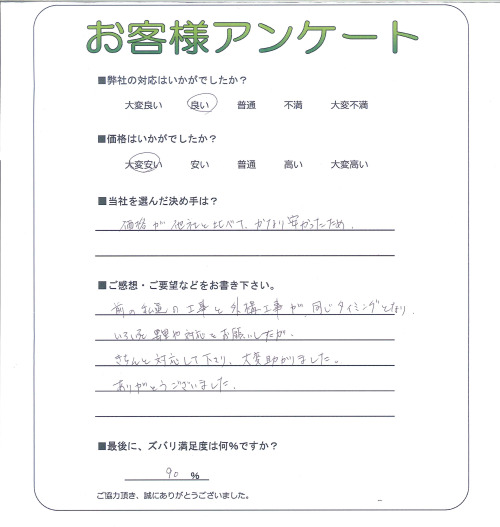 お客様アンケート
■弊社の対応はいかがでしたか？
大変良い 良い 普通 不満 大変不満
■価格はいかがでしたか？
大変安い 安い 普通 高い 大変高い
■当社を選んだ決め手は？
価格が他社と比べて、かなり安かったため.
■ご感想・ご要望などをお書き下さい。
前の私道の工事と外構工事が、同じタイミングとなり
いろいろ や対応をお願いしたが、
きちんと対応して下さり、大変助かりました。
ありがとうございました.
■最後に、ズバリ満足度は何％ですか？
90 ％
ご協力頂き、誠にありがとうございました。